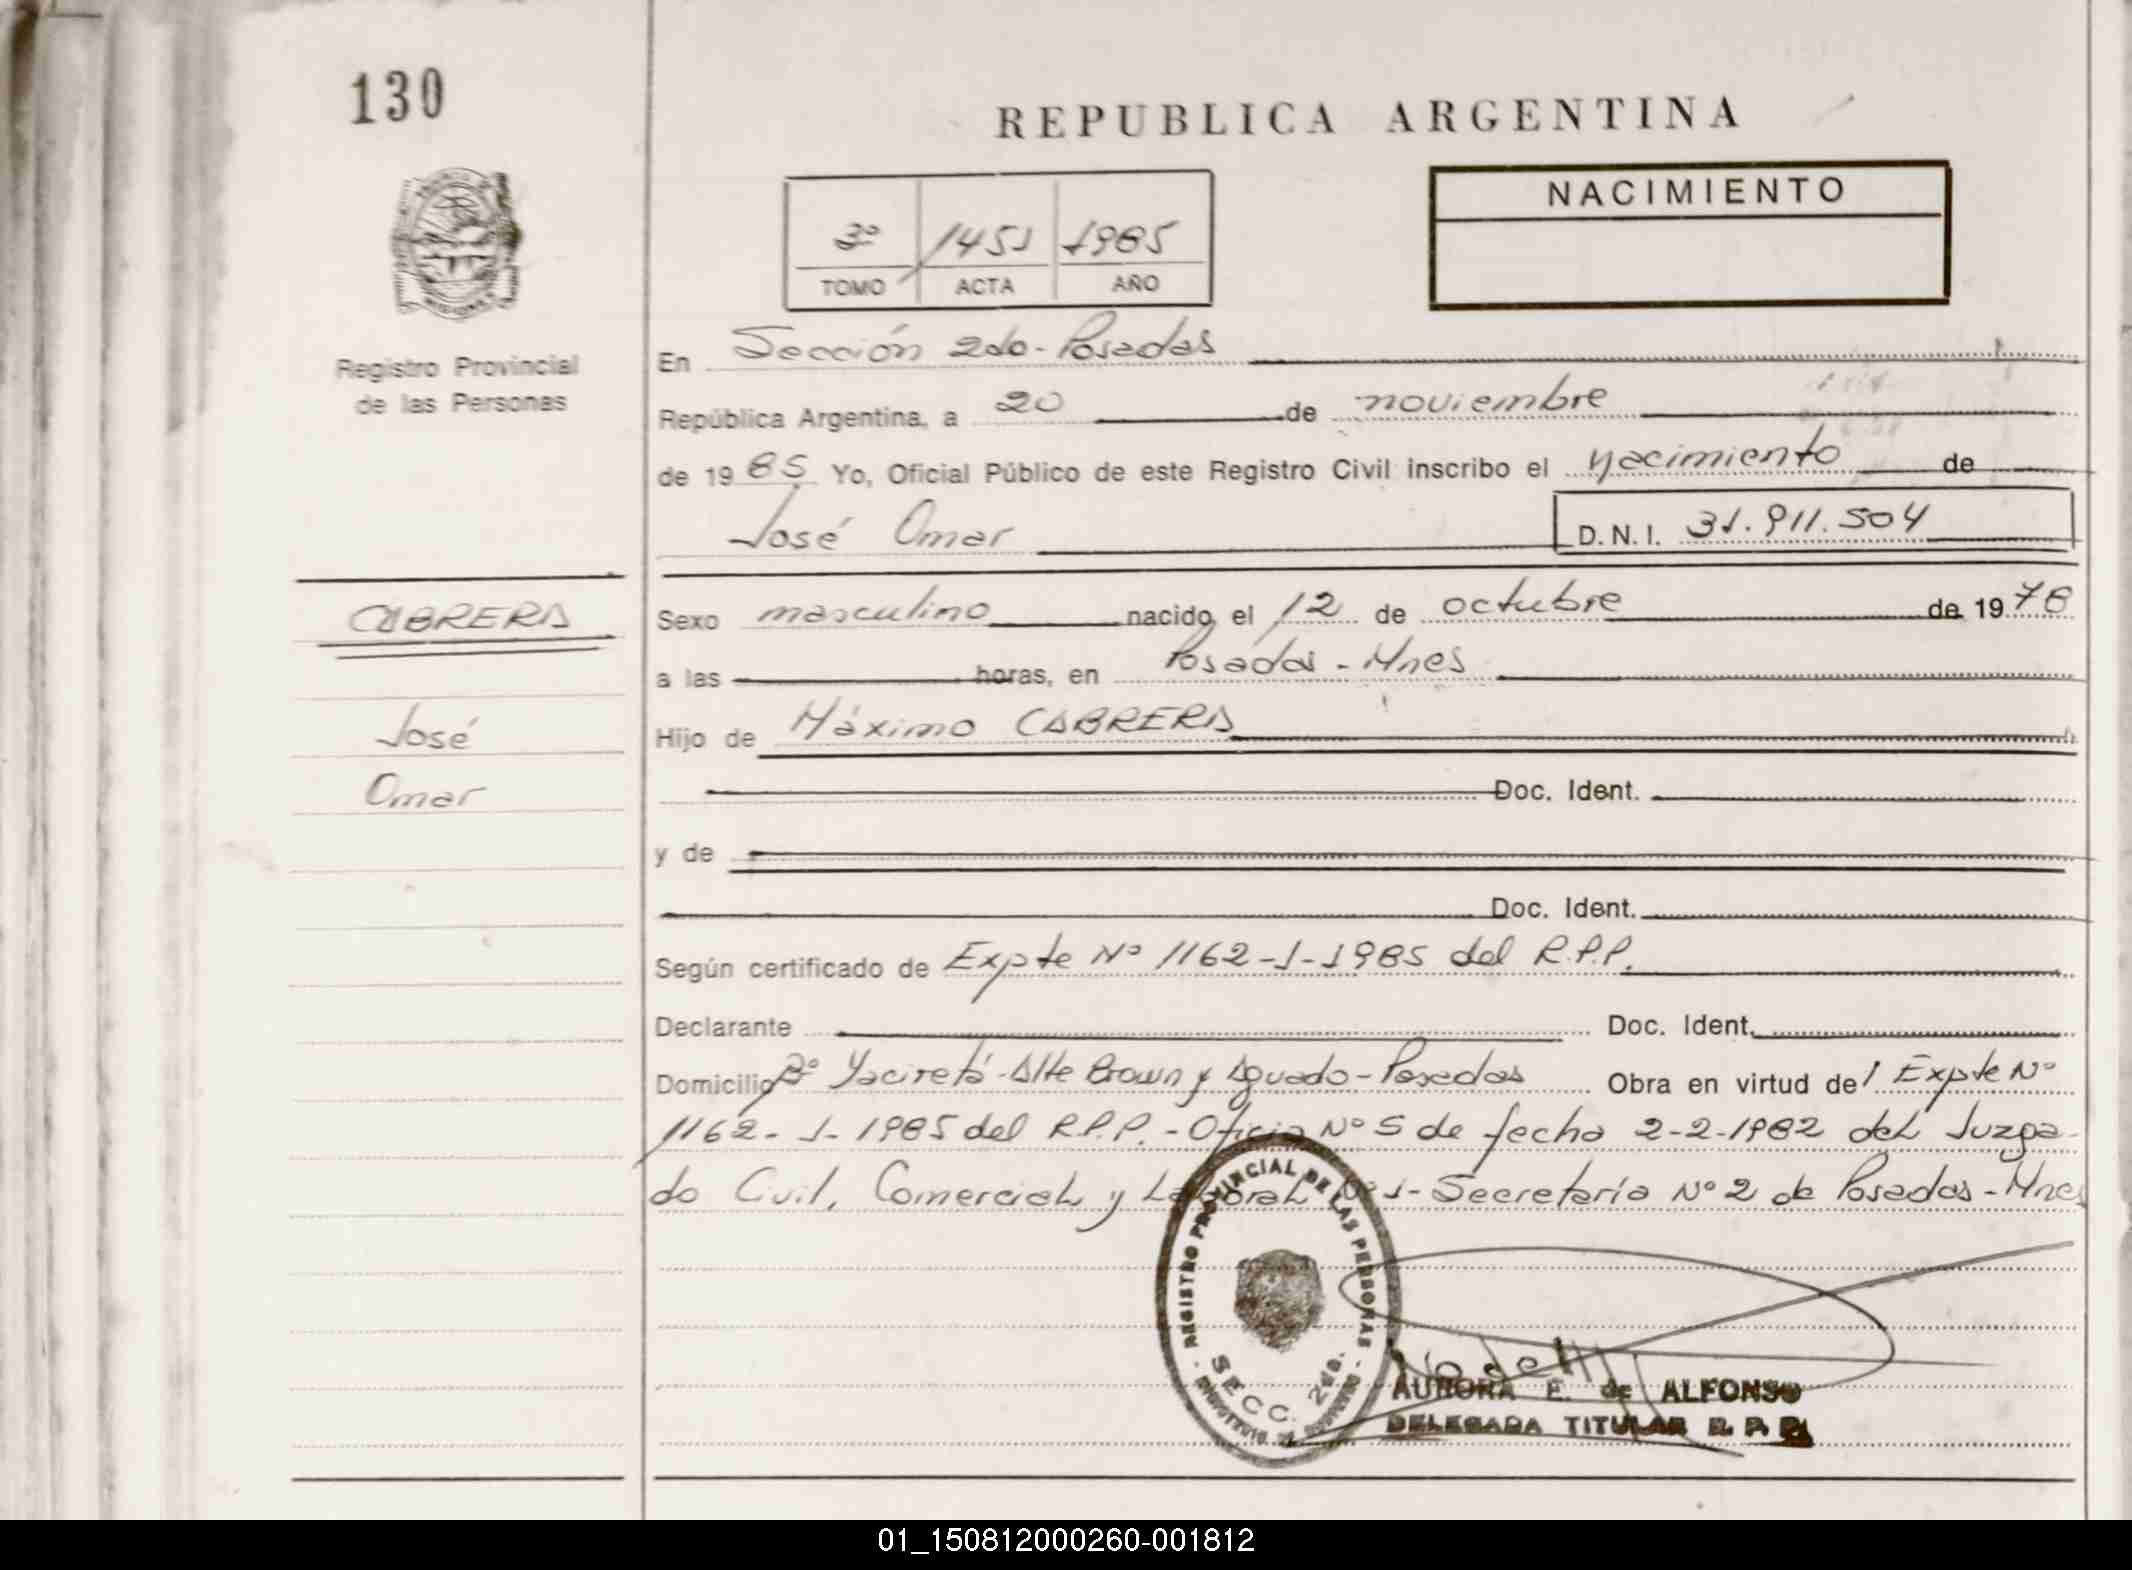 130
REPUBLICA ARGENTINA
NACIMIENTO
3º 1451 1985
TOMO ACTA AÑO
Registro Provincial
de las Personas
En Sección 2do - Posadas
República Argentina, a 20 de noviembre
de 1985 Yo, Oficial Público de este Registro Civil inscribo el nacimiento de
José Omar D.N.I. 31.911.504
CABRERA
José
Omar
Sexo masculino nacido el 12 de octubre de 1978
a las horas, en Posadas - Mnes
Hijo de Máximo CABRERA
Doc. Ident.
y de
Doc. Ident.
Según certificado de Expte Nº 1162-1-1985 del R.P.P.
Declarante Doc. Ident.
Domicilio Yaciretá - Alte Brown y Aguado - Posadas Obra en virtud del Expte Nº
1162-1-1985 del R.P.P. - Oficio Nº 5 de fecha 2-2-1982 del Juzga-
do Civil, Comercial y Laboral Nº 1 - Secretaría Nº 2 de Posadas - Mnes
REGISTRO PROVINCIAL DE LAS PERSONAS
SECC. 2da.
MINISTERIO DE GOBIERNO
AURORA E. de ALFONSO
DELEGADA TITULAR R.P.P.
01_150812000260-001812